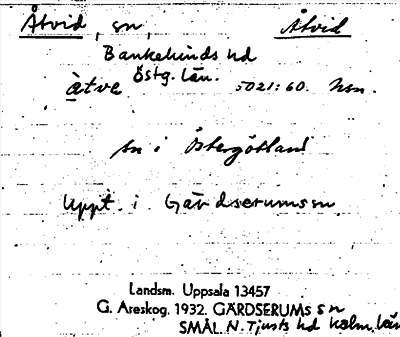 Åtvid, sn, Åtvid
Bankekinds hd
Östg. län.
àtve 5021:60. hsn.
sn i Östergötland
Uppt. i Gärdserums sn
Landsm. Uppsala 13457
G. Areskog. 1932. GÄRDSERUMS sn
SMÅL. N. Tjusts hd Kalm. län